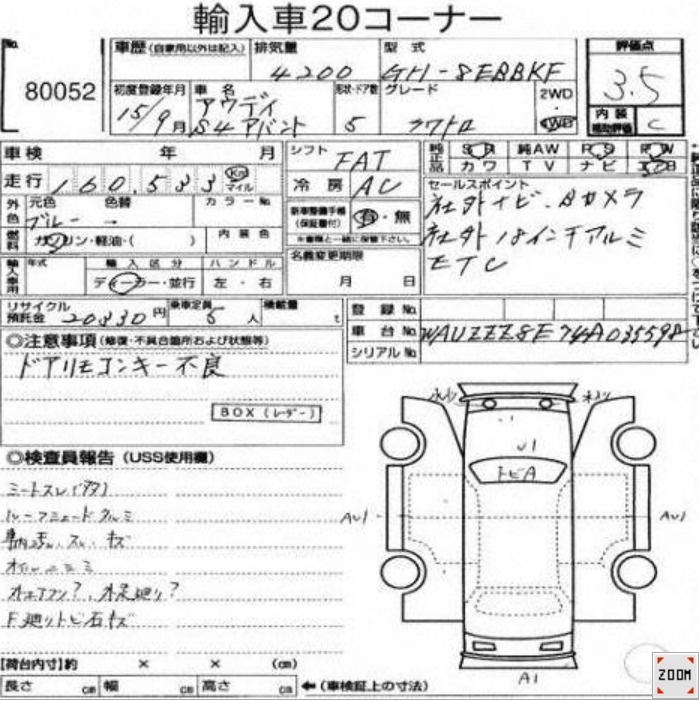 輸入車20コーナー
No.
80052
車歴 (自家用以外は記入)
排気量
4200
型式
GH-8EBBKF
評価点
3.5
内装
補助評価
C
初度登録年月
15/9月
車名
アウディ
S4アバント
形状・ドア数
5
グレード
クワトロ
2WD
4WD
車検 年 月
シフト
FAT
純正品
SR 純AW PS PW
カワ TV ナビ エアB
走行 160,533 Km マイル
冷房
AC
セールスポイント
社外ナビ・Bカメラ
社外18インチアルミ
ETC
外色
元色 色替 カラーNo.
ブルー →
燃料
ガソリン・軽油・( )
内装色
新車整備手帳
(保証書付)
有・無
※書類と一緒に保管下さい。
名義変更期限
月 日
輸入車用
年式 輸入区分 ハンドル
ディーラー・並行 左・右
リサイクル
預託金
20830円
乗車定員
5人
積載量
t
登録No.
車台No.
WAUZZZ8E74A035598
シリアルNo.
◎注意事項 (修復・不具合箇所および状態等)
ドアリモコンキー不良
BOX(レーダー)
◎検査員報告 (USS使用欄)
シートスレ
車内汚れ、スレ、キズ
F廻りトビ石キズ
U1
トビA
AU1
AU1
A1
【荷台内寸】約 × × (cm)
長さ cm 幅 cm 高さ cm
←(車検証上の寸法)
ZOOM